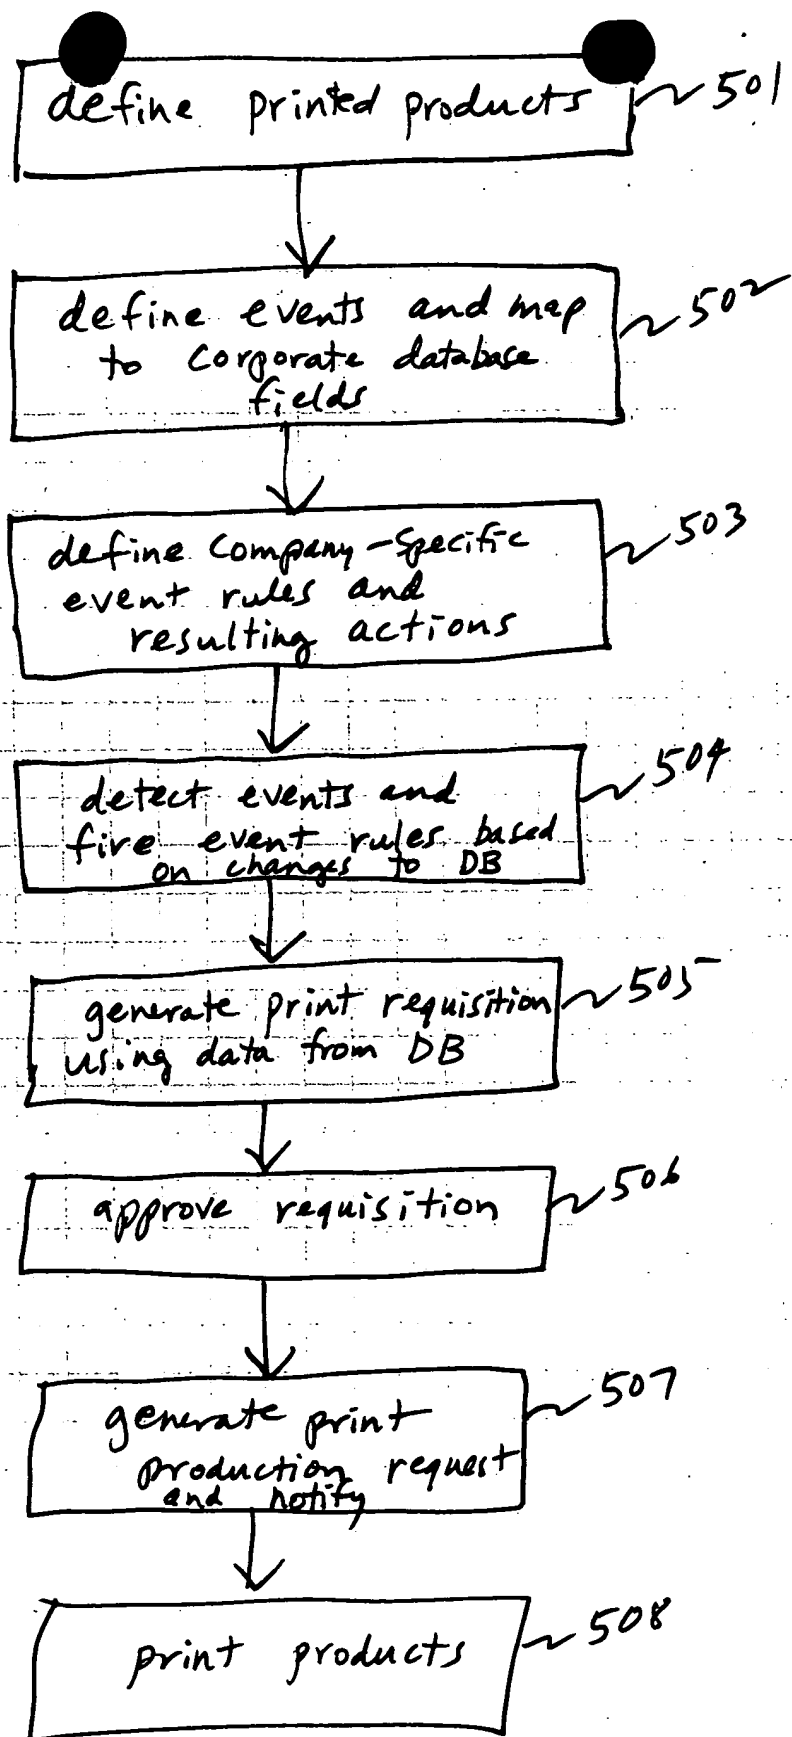 define printed products
501
define events and map
to corporate database
fields
502
define Company-Specific
event rules and
resulting actions
503
detect events and
fire event rules based
on changes to DB
504
generate print requisition
using data from DB
505
approve requisition
506
generate print
production request
and notify
507
print products
508